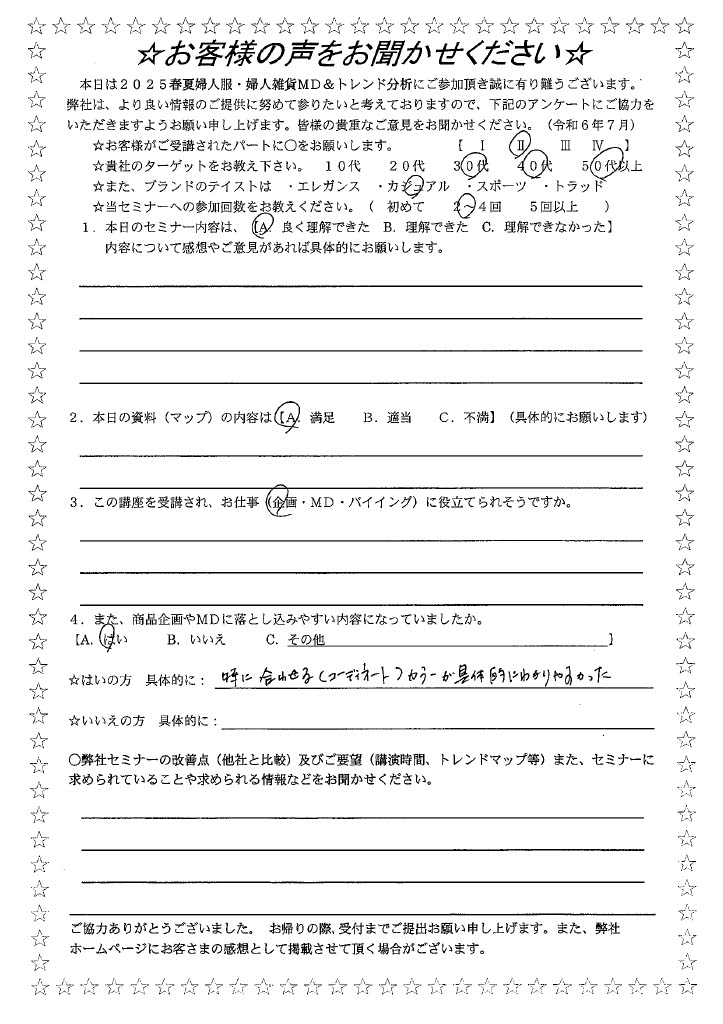 ☆お客様の声をお聞かせください☆
本日は2025春夏婦人服・婦人雑貨MD＆トレンド分析にご参加頂き誠に有り難うございます。
弊社は、より良い情報のご提供に努めて参りたいと考えておりますので、下記のアンケートにご協力を
いただきますようお願い申し上げます。皆様の貴重なご意見をお聞かせください。（令和6年7月）
☆お客様がご受講されたパートに○をお願いします。　【　Ⅰ　Ⅱ　Ⅲ　Ⅳ　】
☆貴社のターゲットをお教え下さい。　10代　20代　30代　40代　50代以上
☆また、ブランドのテイストは　・エレガンス　・カジュアル　・スポーツ　・トラッド
☆当セミナーへの参加回数をお教えください。（　初めて　2～4回　5回以上　）
1．本日のセミナー内容は、【A. 良く理解できた　B. 理解できた　C. 理解できなかった】
内容について感想やご意見があれば具体的にお願いします。
2．本日の資料（マップ）の内容は【A. 満足　B. 適当　C. 不満】（具体的にお願いします）
3．この講座を受講され、お仕事（企画・MD・バイイング）に役立てられそうですか。
4．また、商品企画やMDに落とし込みやすい内容になっていましたか。
【A. はい　B. いいえ　C. その他　】
☆はいの方　具体的に：　特に合わせる（コーディネート）カラーが具体的にわかりやすかった
☆いいえの方　具体的に：
○弊社セミナーの改善点（他社と比較）及びご要望（講演時間、トレンドマップ等）また、セミナーに
求められていることや求められる情報などをお聞かせください。
ご協力ありがとうございました。　お帰りの際、受付までご提出お願い申し上げます。また、弊社
ホームページにお客さまの感想として掲載させて頂く場合がございます。